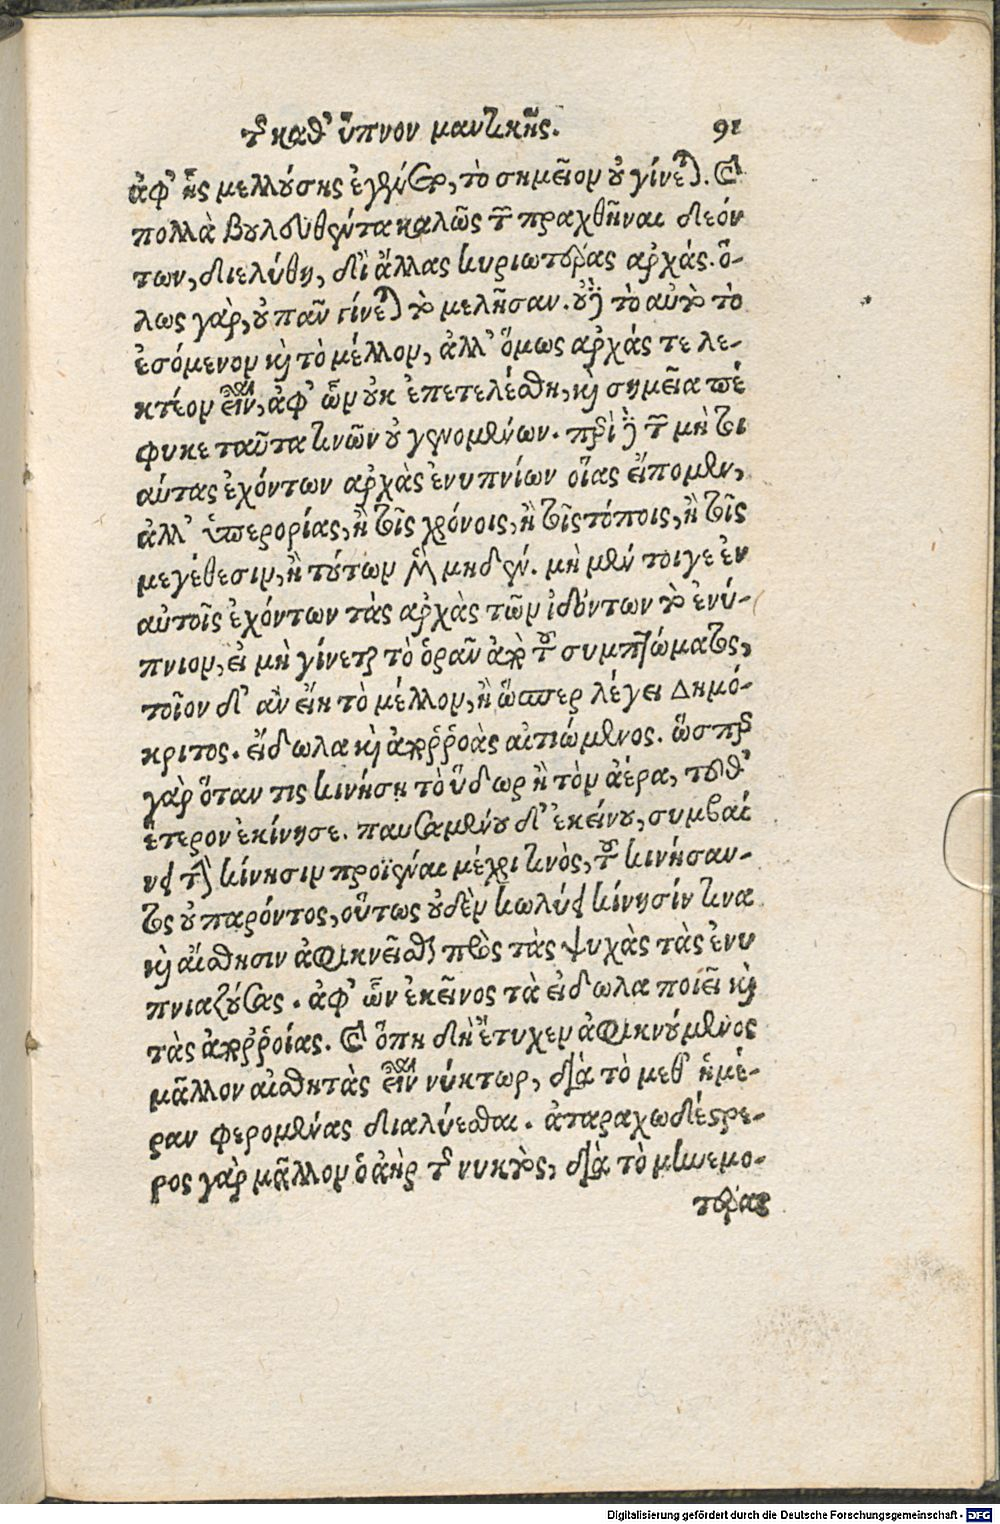 τῆς καθ᾽ ὕπνον μαντικῆς. 91
ἀφ᾽ ἧς μελλούσης ἐγένετο, τὸ σημεῖον οὐ γίνεται. καὶ
πολλὰ βουλευθέντα καλῶς τῶν πραχθῆναι δεόν
των, διελύθη, δι᾽ ἄλλας κυριωτέρας ἀρχάς. ὅ-
λως γὰρ, οὐ πᾶν γίνεται τὸ μελῆσαν. οὐδὲ τὸ αὐτὸ τὸ
ἐσόμενον καὶ τὸ μέλλον, ἀλλ᾽ ὅμως ἀρχάς τε λε-
κτέον εἶναι, ἀφ᾽ ὧν οὐκ ἐπετελέσθη, καὶ σημεῖα πέ
φυκε ταῦτα τινῶν οὐ γενομένων. περὶ δὲ τῶν μὴ τοι
αύτας ἐχόντων ἀρχὰς ἐνυπνίων οἵας εἴπομεν,
ἀλλ᾽ ὑπερορίας, ἢ τοῖς χρόνοις, ἢ τοῖς τόποις, ἢ τοῖς
μεγέθεσιν, ἢ τούτων μὲν μηδέν. μὴ μέν τοι γε ἐν
αὑτοῖς ἐχόντων τὰς ἀρχὰς τῶν ἰδόντων τὸ ἐνύ-
πνιον, εἰ μὴ γίνεται τὸ ὁρᾶν ἀπὸ τοῦ συμπτώματος,
τοῖον δ᾽ ἂν εἴη τὸ μέλλον, ἢ ὥσπερ λέγει Δημό-
κριτος. εἴδωλα καὶ ἀπορῥοὰς αἰτιώμενος. ὥσπερ
γὰρ ὅταν τις κινήσῃ τὸ ὕδωρ ἢ τὸν ἀέρα, τοῦθ᾽
ἕτερον ἐκίνησε. παυσαμένου δ᾽ ἐκείνου, συμβαί
νει τὴν κίνησιν προϊέναι μέχρι τινὸς, τοῦ κινήσαν-
τος οὐ παρόντος, οὕτως οὐδὲν κωλύει κίνησίν τινα
καὶ αἴσθησιν ἀφικνεῖσθαι πρὸς τὰς ψυχὰς τὰς ἐνυ
πνιαζούσας. ἀφ᾽ ὧν ἐκεῖνος τὰ εἴδωλα ποιεῖ καὶ
τὰς ἀπορῥοίας. καὶ ὅπη δὴ ἔτυχεν ἀφικνούμενος
μᾶλλον αἰσθητὰς εἶναι νύκτωρ, διὰ τὸ μεθ᾽ ἡμέ-
ραν φερομένας διαλύεσθαι. ἀταραχωδέστε-
ρος γὰρ μᾶλλον ὁ ἀὴρ τῆς νυκτὸς, διὰ τὸ νηνεμο-
τέρας
Digitalisierung gefördert durch die Deutsche Forschungsgemeinschaft - DFG